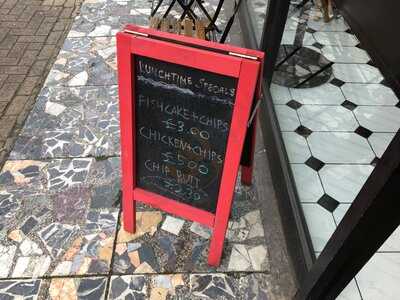 LUNCHTIME SPECIALS
FISHCAKE+CHIPS
£3.00
CHICKEN+CHIPS
£5.00
CHIP BUTT
£2.30